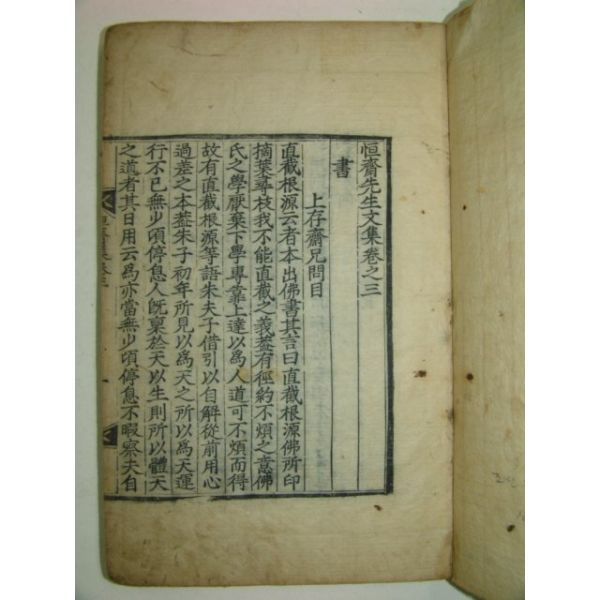 恒齋先生文集卷之三
書
上存齋兄問目
直截根源云者本出佛書其言曰直截根源佛所印
摘葉尋枝我不能直截之義盖有徑約不煩之意佛
氏之學厭棄下學專靠上達以爲人道可不煩而得
故有直截根源等語朱夫子借引以自解從前用心
過差之本盖朱子初年所見以爲天之所以爲天運
行不已無少頃停息人旣稟於天以生則所以體天
之道者其日用云爲亦當無少頃停息不暇察夫自